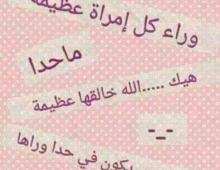 وراء كل إمراة عظيمة
ماحدا
هيك .....الله خالقها عظيمة
-_-
يكون في حدا وراها